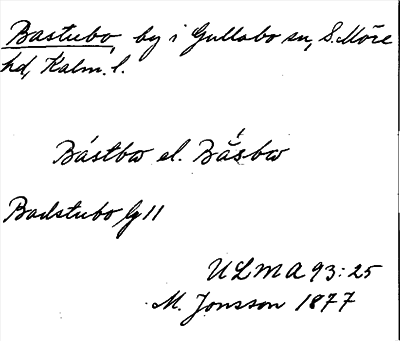 Bastubo, by i Gullabo sn, S. Möre
hd, Kalm. l.
Bástbω el. Bắsbω
Badstubo G 11
ULMA 93:25
M. Jonsson 1877